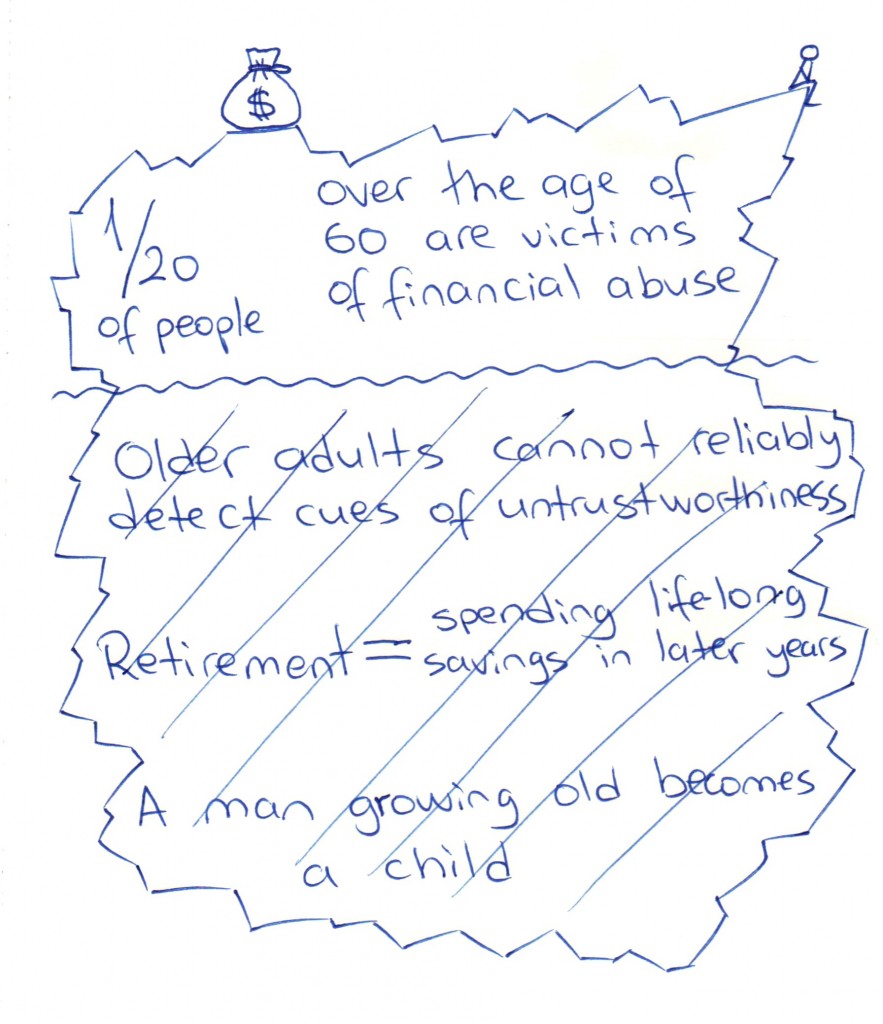 $
1/20
of people
over the age of
60 are victims
of financial abuse
Older adults cannot reliably
detect cues of untrustworthiness
Retirement = spending life-long
savings in later years
A man growing old becomes
a child